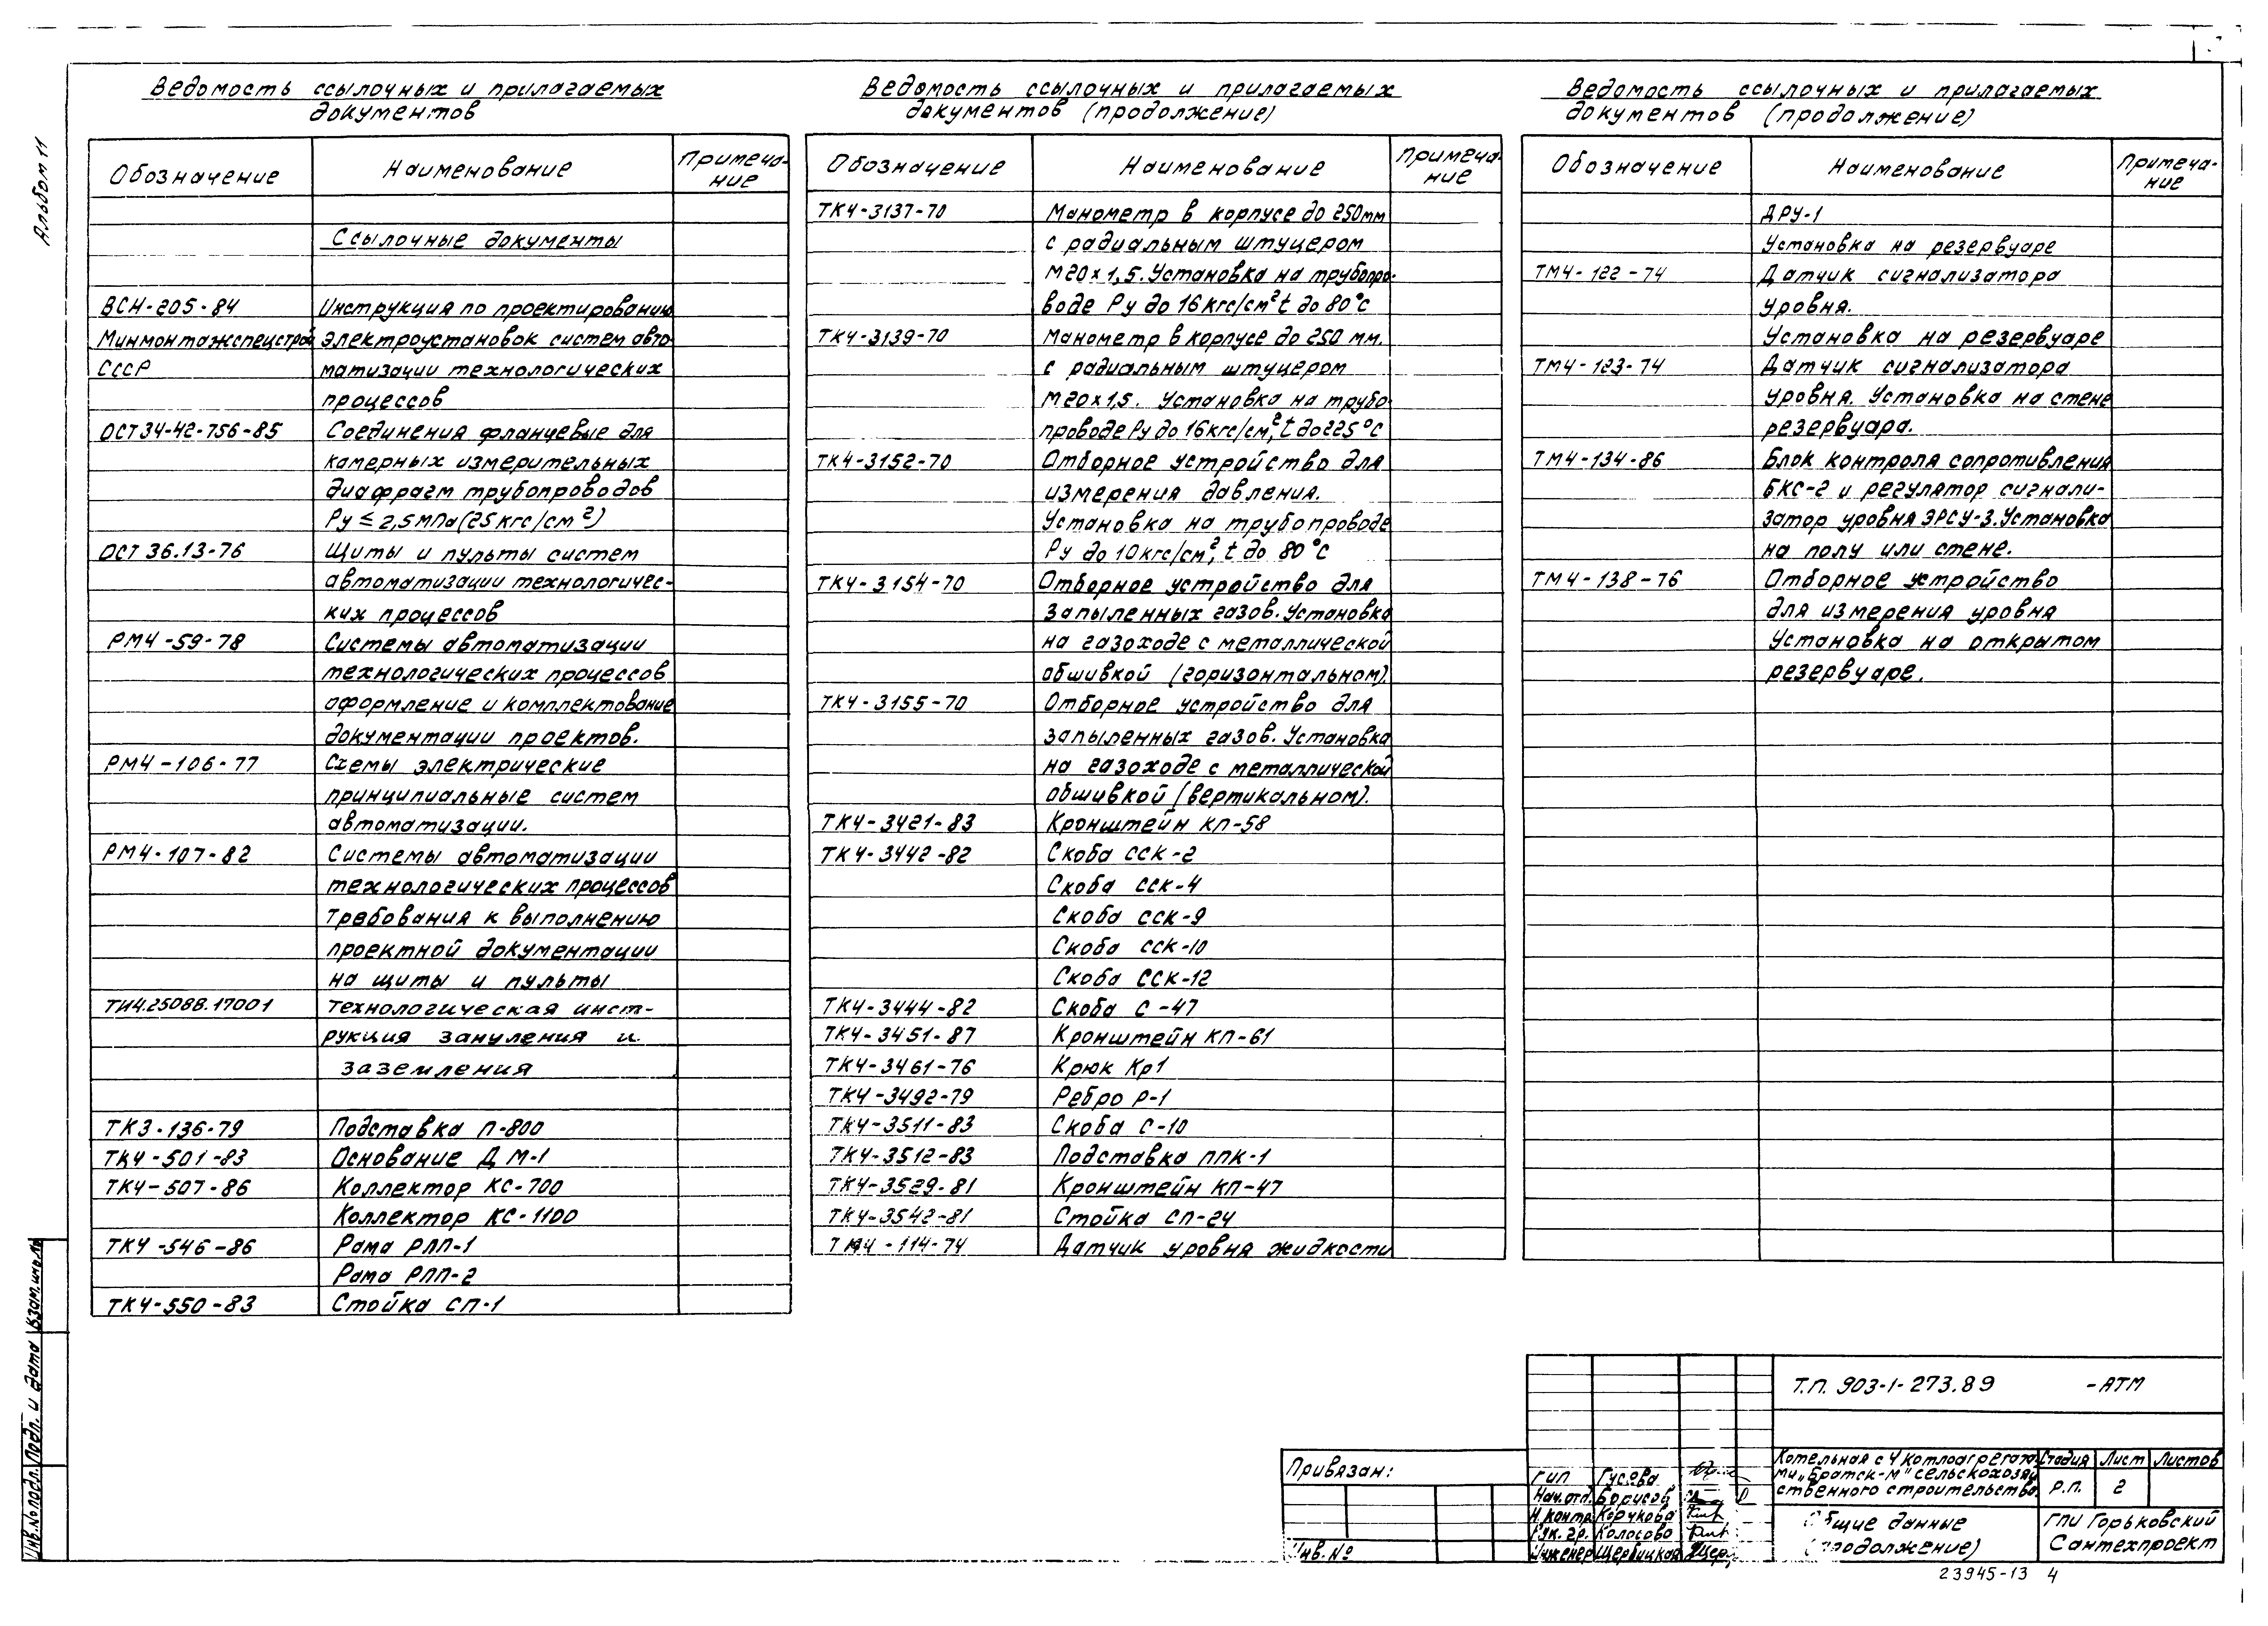 Альбом 11
Ведомость ссылочных и прилагаемых
документов
Обозначение Наименование Примеча-
ние
Ссылочные документы
ВСН-205-84 Инструкция по проектированию
Минмонтажспецстрой электроустановок систем авто
СССР матизации технологических
процессов
ОСТ 34-42-756-85 Соединения фланцевые для
камерных измерительных
диафрагм трубопроводов
Ру ≤ 2,5 МПа (25 кгс/см²)
ОСТ 36.13-76 Щиты и пульты систем
автоматизации технологичес-
ких процессов
РМ4-59-78 Системы автоматизации
технологических процессов
оформление и комплектование
документации проектов.
РМ4-106-77 Схемы электрические
принципиальные систем
автоматизации.
РМ4-107-82 Системы автоматизации
технологических процессов
Требования к выполнению
проектной документации
на щиты и пульты
ТИ4.25088.17001 Технологическая инст-
рукция зануления и
заземления
ТК3-136-79 Подставка П-800
ТК4-501-83 Основание ДМ-1
ТК4-507-86 Коллектор КС-700
Коллектор КС-1100
ТК4-546-86 Рама РПП-1
Рама РПП-2
ТК4-550-83 Стойка СП-1
Ведомость ссылочных и прилагаемых
документов (продолжение)
Обозначение Наименование Примеча-
ние
ТК4-3137-70 Манометр в корпусе до 250мм
с радиальным штуцером
М20х1,5. Установка на трубопро-
воде Ру до 16 кгс/см² t до 80°С
ТК4-3139-70 Манометр в корпусе до 250 мм.
с радиальным штуцером
М20х1,5. Установка на трубо-
проводе Ру до 16 кгс/см², t до 225°С
ТК4-3152-70 Отборное устройство для
измерения давления.
Установка на трубопроводе
Ру до 10 кгс/см², t до 80°С
ТК4-3154-70 Отборное устройство для
запыленных газов. Установка
на газоходе с металлической
обшивкой (горизонтальном)
ТК4-3155-70 Отборное устройство для
запыленных газов. Установка
на газоходе с металлической
обшивкой (вертикальном).
ТК4-3421-83 Кронштейн КП-58
ТК4-3442-82 Скоба ССК-2
Скоба ССК-4
Скоба ССК-9
Скоба ССК-10
Скоба ССК-12
ТК4-3444-82 Скоба С-47
ТК4-3451-87 Кронштейн КП-61
ТК4-3461-76 Крюк Кр1
ТК4-3492-79 Ребро Р-1
ТК4-3511-83 Скоба С-10
ТК4-3512-83 Подставка ППК-1
ТК4-3529-81 Кронштейн КП-47
ТК4-3542-81 Стойка СП-24
ТМ4-114-74 Датчик уровня жидкости
Ведомость ссылочных и прилагаемых
документов (продолжение)
Обозначение Наименование Примеча-
ние
ДРУ-1
Установка на резервуаре
ТМ4-122-74 Датчик сигнализатора
уровня.
Установка на резервуаре
ТМ4-123-74 Датчик сигнализатора
уровня. Установка на стене
резервуара.
ТМ4-134-86 Блок контроля сопротивления
БКС-2 и регулятор сигнали-
затор уровня ЭРСУ-3. Установка
на полу или стене.
ТМ4-138-76 Отборное устройство
для измерения уровня
Установка на открытом
резервуаре.
Инв.№подл. Подп. и дата Взам.инв.№
Привязан:
Инв.№
ГИП Гусева
Нач.отд. Борисов
Н.контр. Корчкова
Рук.гр. Колосова
Инженер Щербицкая
Т.П. 903-1-273.89 -АТМ
Котельная с 4 котлоагрегата-
ми „Братск-М" сельскохозяй
ственного строительства
Стадия Лист Листов
Р.П. 2
Общие данные
(продолжение)
ГПИ Горьковский
Сантехпроект
23945-13 4